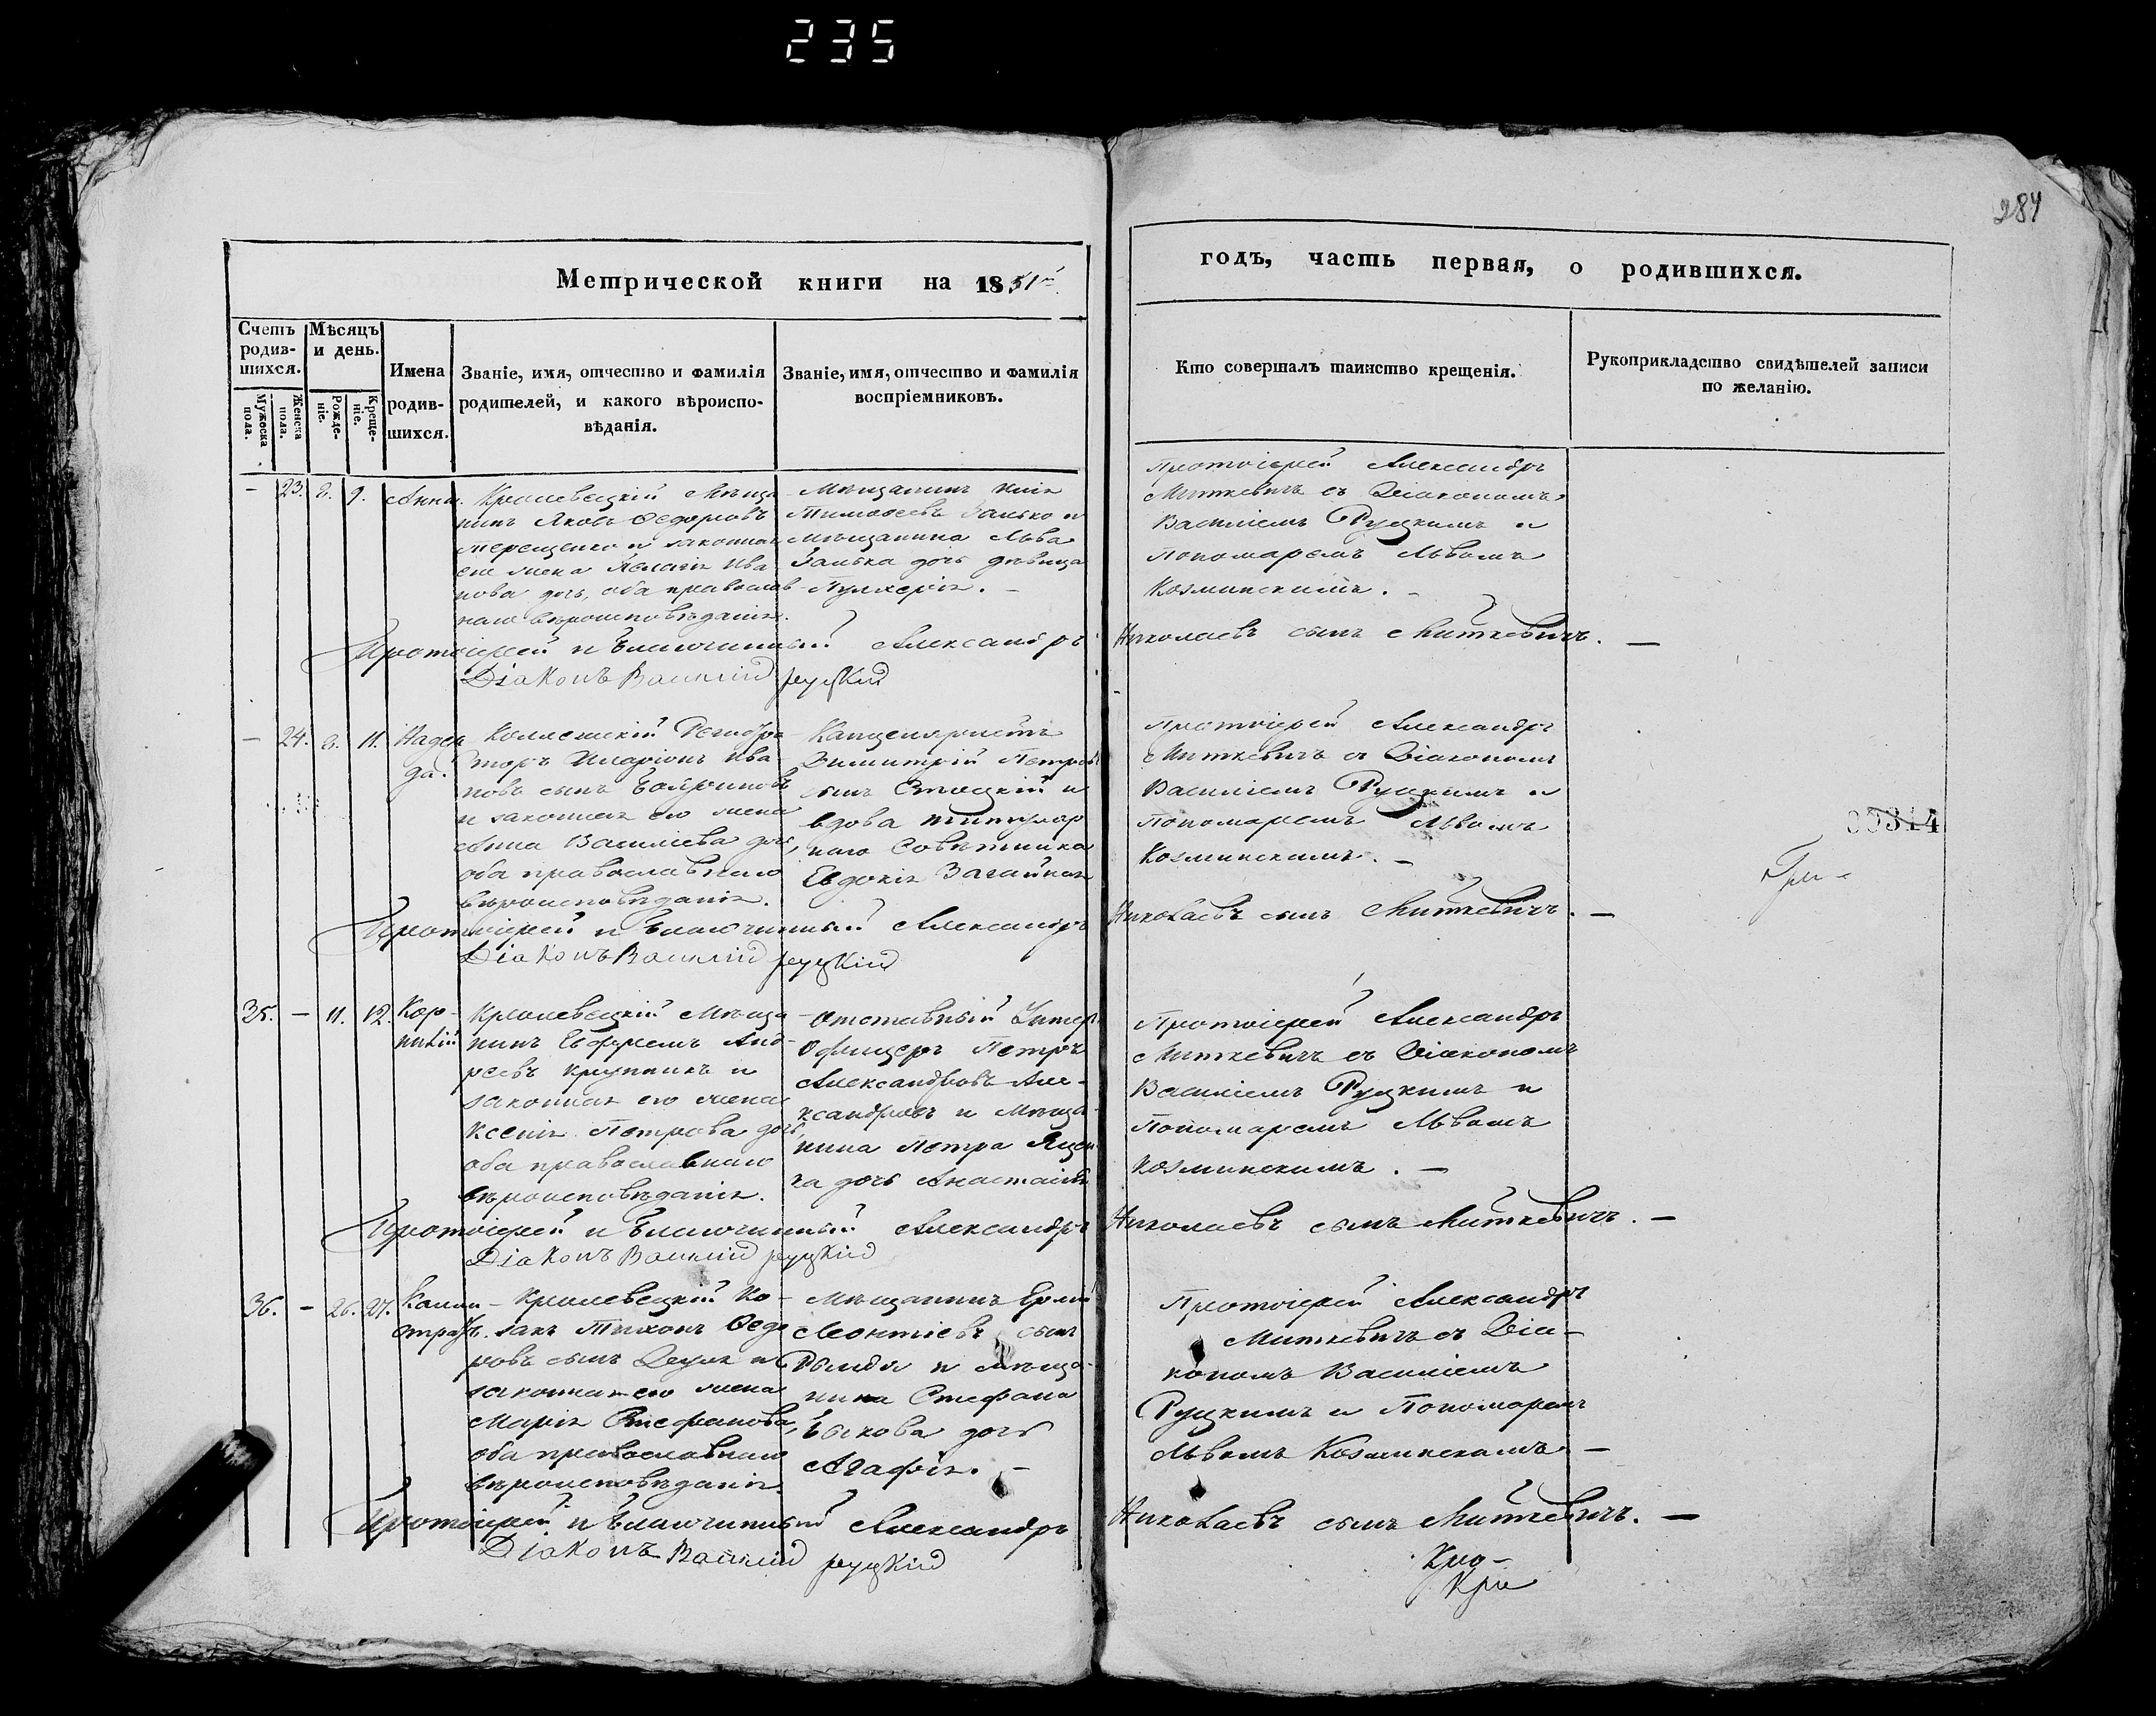 235
284
Метрической книги на 1851й
годъ, часть первая, о родившихся.
Счетъ родив-шихся.
Мужеска пола.
Женска пола.
Мѣсяцъ и день.
Рожде-ніе.
Креще-ніе.
Имена родив-шихся.
Званіе, имя, отчество и фамилія
родителей, и какого вѣроиспо-
вѣданія.
Званіе, имя, отчество и фамилія
воспріемниковъ.
Кто совершалъ таинство крещенія.
Рукоприкладство свидѣтелей записи
по желанію.
- 23. 8. 9. Анна.
Кролевецкій мѣща
нинъ Яковъ Ѳедоровъ
Терещенко и законная
его жена Пелагія Ива
нова дочь, оба православ
наго вѣроисповѣданія.
Мѣщанинъ Илія
Тимоѳеевъ Заика и
мѣщанина Льва
Заика дочь дѣвица
Пулхерія. -
Протоіерей Александръ
Миткевичъ съ Діакономъ
Василіемъ Руцкимъ и
Пономаремъ Львомъ
Козминскимъ. -
Протоіерей и Благочинный Александръ Николаевъ сынъ Миткевичъ. -
Діаконъ Василій руцкій
- 24. 8. 11. Надеж
да.
Колежскій Регистра
торъ Иларіонъ Ива
новъ сынъ
и законная его жена
Анна Василіева дочь,
оба православнаго
вѣроисповѣданія.
Канцеляристъ
Димитрій Петровъ
сынъ и
вдова титуляр
наго Совѣтника
Евдокія
Протоіерей Александръ
Миткевичъ съ Діакономъ
Василіемъ Руцкимъ и
Пономаремъ Львомъ
Козминскимъ. -
00314
Протоіерей и Благочинный Александръ Николаевъ сынъ Миткевичъ. -
Діаконъ Василій руцкій
35. - 11. 12. Кор-
нилій
Кролевецкій Мѣща
нинъ Ефремъ Анд-
реевъ Крупникъ и
законная его жена
Ксенія Петрова дочь,
оба православнаго
вѣроисповѣданія.
Отставный Унтеръ
Офицеръ Петръ
Александровъ Але-
ксандровъ и Мѣща-
нина Петра
дочь Анастасія
Протоіерей Александръ
Миткевичъ съ Діакономъ
Василіемъ Руцкимъ и
Пономаремъ Львомъ
Козминскимъ. -
Протоіерей и Благочинный Александръ Николаевъ сынъ Миткевичъ. -
Діаконъ Василій руцкій
36. - 26. 27. Калли
стратъ.
Кролевецкій Ко-
закъ Тихонъ Ѳедо
ровъ сынъ и
законная его жена
Марія Стефанова,
оба православнаго
вѣроисповѣданія
Мѣщанинъ
Леонтіевъ сынъ
и мѣща-
нина Стефана
Быкова дочь
Агафія. -
Протоіерей Александръ
Миткевичъ съ Діа-
кономъ Василіемъ
Руцкимъ и Пономаремъ
Львомъ Козминскимъ. -
Протоіерей и Благочинный Александръ Николаевъ сынъ Миткевичъ. -
Діаконъ Василій руцкій